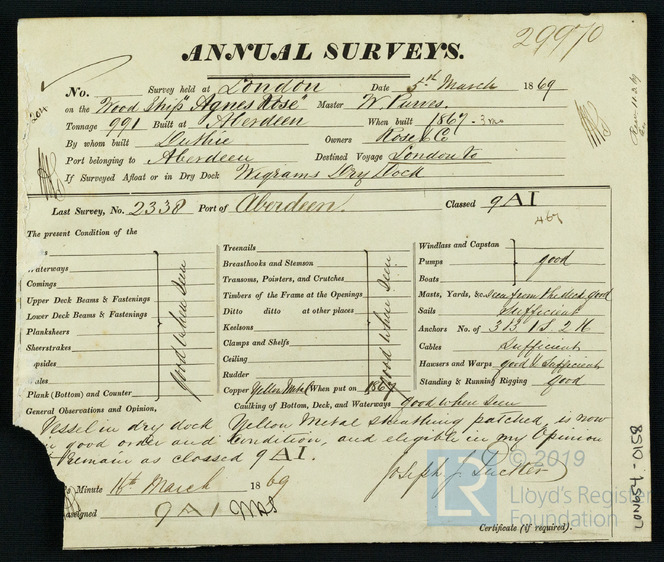 29970
ANNUAL SURVEYS.
No. Survey held at London Date 5th March 1869
on the Wood Ship "Agnes Rose" Master W. Purves.
Tonnage 991 Built at Aberdeen When built 1867 - 3 mo
By whom built Duthie Owners Rose & Co
Port belonging to Aberdeen Destined Voyage London to
If Surveyed Afloat or in Dry Dock Wigrams Dry Dock
Last Survey, No. 2338 Port of Aberdeen. Classed 9 A1
4.67
The present Condition of the
Waterways
Comings
Upper Deck Beams & Fastenings
Lower Deck Beams & Fastenings
Planksheers
Sheerstrakes
Topsides
Wales
Plank (Bottom) and Counter
good when seen
Treenails
Breasthooks and Stemson
Transoms, Pointers, and Crutches
Timbers of the Frame at the Openings
Ditto ditto at other places
Keelsons
Clamps and Shelfs
Ceiling
Rudder
good when seen
Copper Yellow Metal When put on 1867
Caulking of Bottom, Deck, and Waterways good when seen
Windlass and Capstan
Pumps good
Boats
Masts, Yards, &c. seen from the deck good
Sails Sufficient
Anchors No. of 3 B 1 S 2 K
Cables Sufficient
Hawsers and Warps good & Sufficient
Standing & Running Rigging good
General Observations and Opinion,
Vessel in dry dock Yellow Metal sheathing patched, is now
in good order and Condition, and eligible in my Opinion
to remain as classed 9 A1.
Joseph J. Tucker
Minute 16th March 1869
assigned 9 A1
Certificate (if required).
LON654-0158
LR © 2019
Lloyd's Register
Foundation